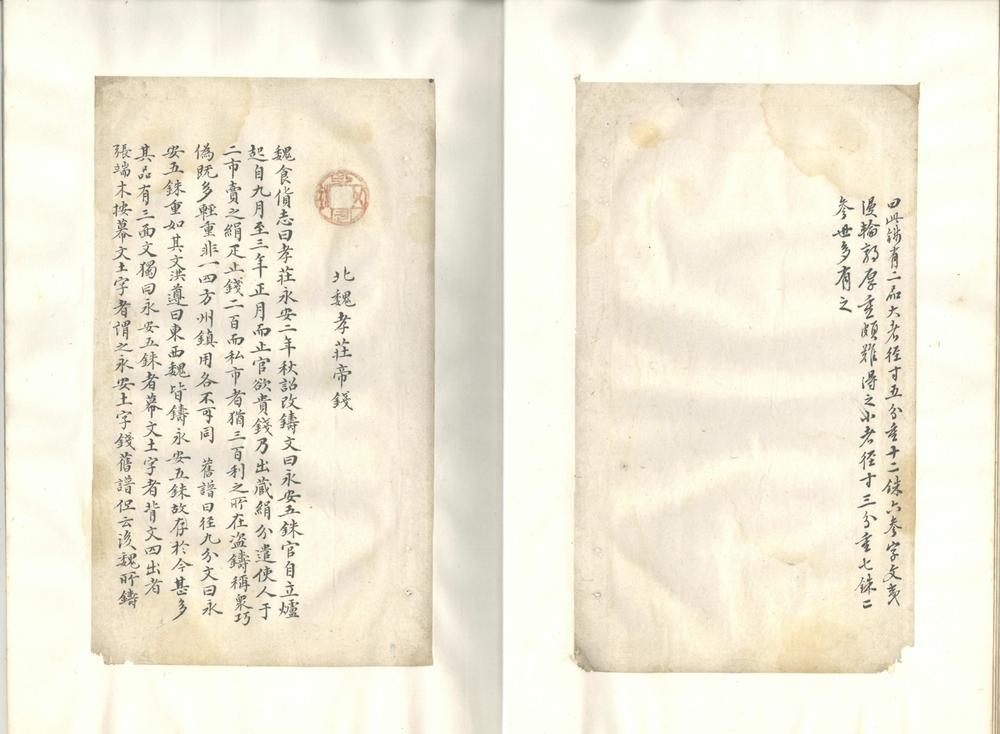 曰此錢有二品大者径寸五分重十二銖六參字文夷
漫輪郭厚重頗難得之小者径寸三分重七銖二
參世多有之
北魏孝莊帝錢
魏食貨志曰孝莊永安二年秋詔改鑄文曰永安五銖官自立爐
起自九月至三年正月而止官欲貴錢乃出藏絹分遣使人于
二市賣之絹疋止錢二百而私市者猶三百利之所在盜鑄稱衆巧
偽既多輕重非一四方州鎮用各不同 舊譜曰径九分文曰永
安五銖重如其文洪遵曰東西魏皆鑄永安五銖故存於今甚多
其品有三面文獨曰永安五銖者幕文土字者背文四出者
張端木按幕文土字者謂之永安土字錢舊譜但云後魏所鑄